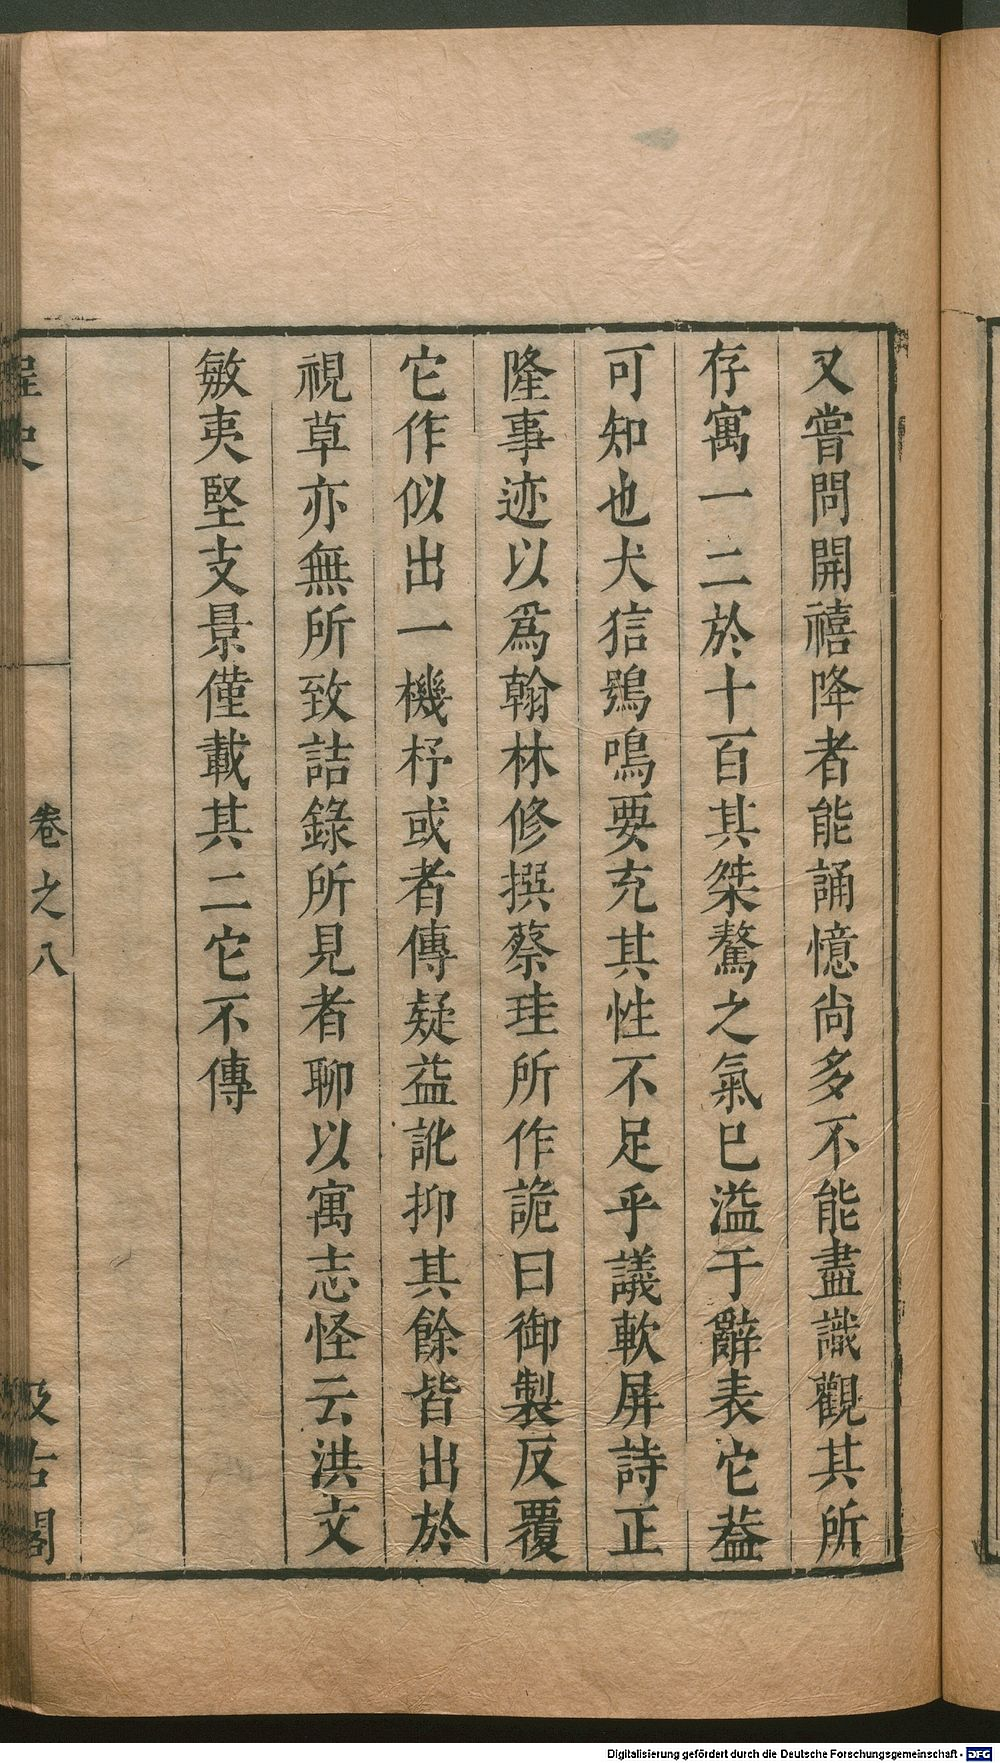 又嘗問開禧降者能誦憶尚多不能盡識觀其所
存寓一二於十百其桀驁之氣已溢于辭表它葢
可知也犬狺鴞鳴要充其性不足乎議軟屏詩正
隆事迹以爲翰林修撰蔡珪所作詭曰御製反覆
它作似出一機杼或者傳疑益訛抑其餘皆出於
視草亦無所致詰錄所見者聊以寓志怪云洪文
敏夷堅支景僅載其二它不傳
桯史
卷之八
汲古閣
Digitalisierung gefördert durch die Deutsche Forschungsgemeinschaft - DFG